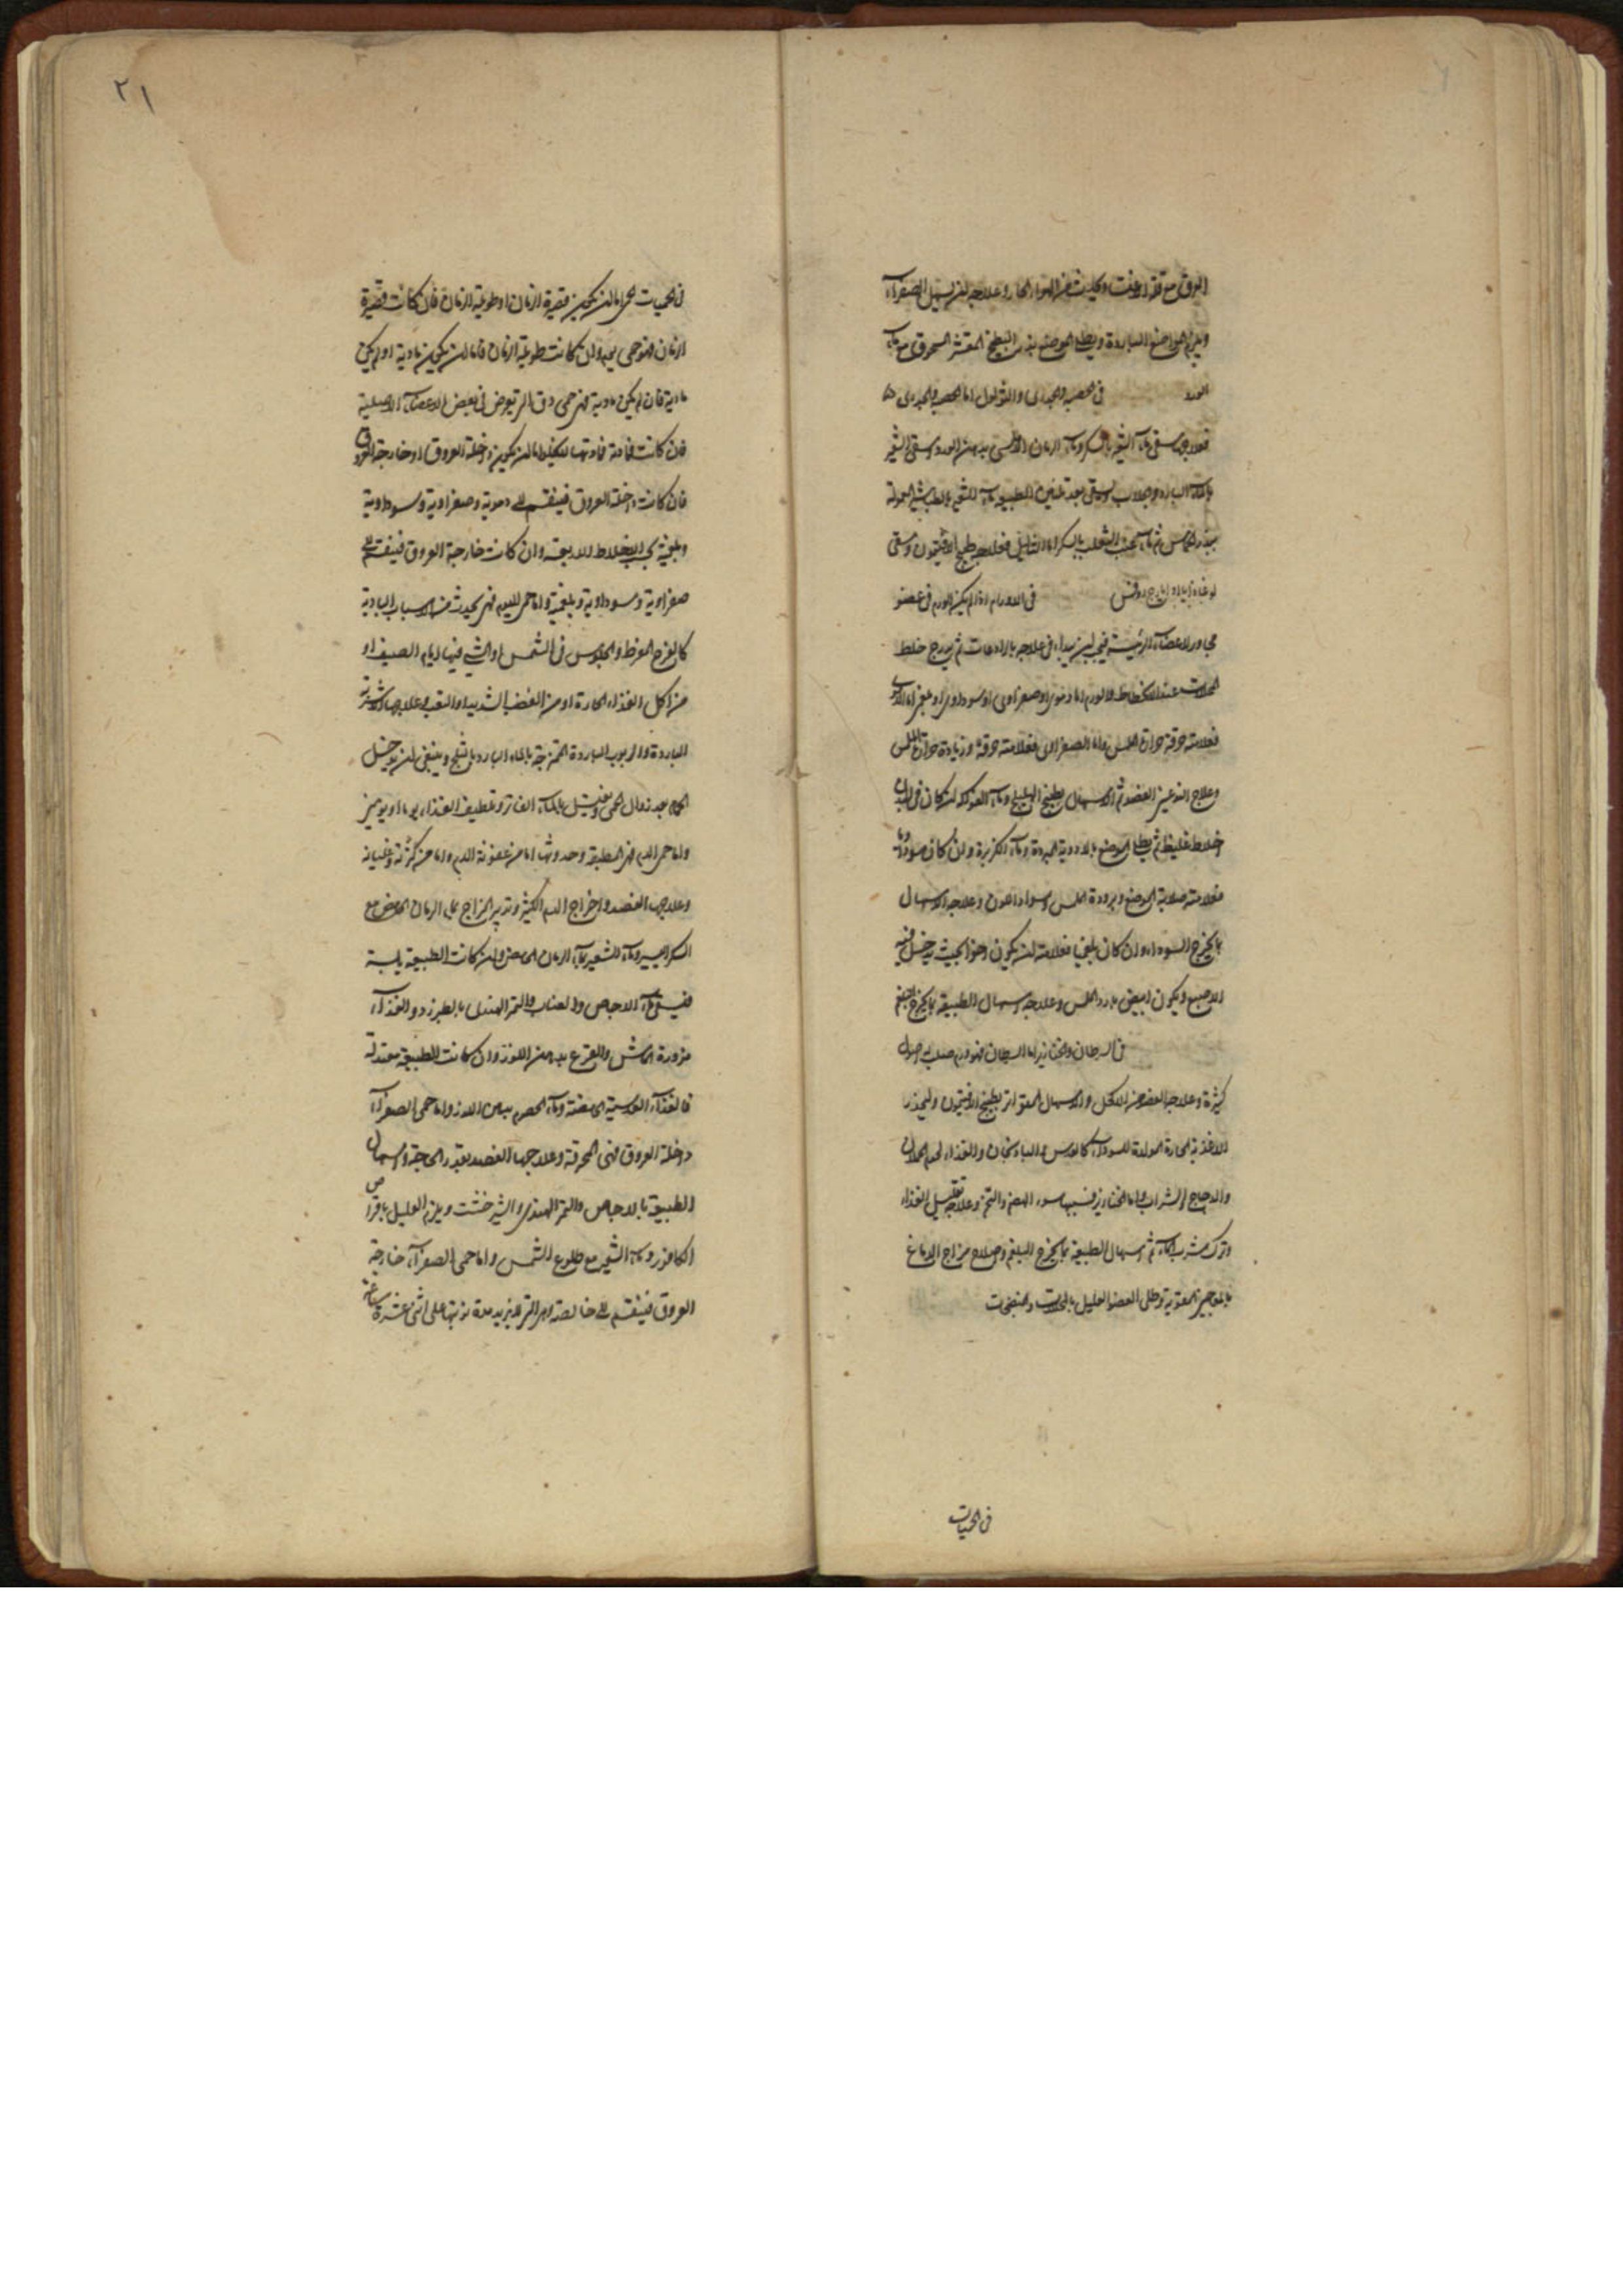 العرق مع قلة الاغتسال الحار وعلاجه ان يسهل الصفرآء
ويلزم المواضع الباردة ويطلى الموضع ببزر البطيخ المقشر المسحوق مع مآء
الورد في الحصبة والجدري والثؤلول اما الحصبة والجدري
فعلاجهما سقي مآء الشعير بالسكر ومآء الرمان الاملسي بدهن الورد وسقي الشعير
بالمآء البارد وجلاب ويسقى بعد تليين الطبيعة مآء الشعير
ثم مآء عنب الثعلب بالسكر اما الثآليل فعلاجه طبيخ الافتيمون وسقي
في الاورام اذا لم يكن الورم في عضو
مجاور للاعضآء الرئيسة فيجب ان يبدأ في علاجه بالرادعات ثم يدرج خلط
المحللات عند الانحطاط والورم اما دموي او صفراوي او سوداوي او بلغمي اما الدموي
فعلامته حرقة حرارة الملمس واما الصفراوي فعلامته حرقة وزيادة حرارة الملمس
وعلاج النوعين الفصد ثم الاسهال بطبيخ الهليلج ومآء الفواكه ان كان في البدن
اخلاط غليظة ثم يطلى الموضع بالادوية المبردة ومآء الكزبرة وان كان سوداويا
فعلامته صلابة الموضع وبرودة الملمس وسواد اللون وعلاجه الاسهال
بما يخرج السودآء وان كان بلغميا فعلامته ان يكون رخوا بحيث يدخل فيه
الاصبع ويكون ابيض بارد الملمس وعلاجه اسهال الطبيعة بما يخرج البلغم
في السرطان والخنازير اما السرطان فهو ورم صلب له اصول
كثيرة وعلاجه الفصد من الاكحل والاسهال المتواتر بطبيخ الافتيمون وليحذر
الاغذية الحارة المولدة للسودآء كالعدس والباذنجان والغذاء لحم الحملان
والدجاج والشراب واما الخنازير فسببها سوء الهضم والتخم وعلاجه تقليل الغذاء
وترك شرب المآء ثم اسهال الطبيعة بما يخرج البلغم واصلاح مزاج الدماغ
بالمعاجين المقوية وطلى العضو العليل بالمحللات والمنضجات
في الحميات
٢١
في الحميات الحمى اما ان تكون قصيرة الزمان او طويلة الزمان فان كانت قصيرة
الزمان فهو حمى يوم وان كانت طويلة الزمان فاما ان تكون مادية او لم يكن
مادية فان لم يكن مادية فهي حمى دق التي تعرض في بعض الاعضآء الاصلية
فان كانت مادية فمادتها لا يخلو اما ان يكون داخلة العروق او خارجة العروق
فان كانت داخلة العروق فينقسم الى دموية وصفراوية وسوداوية
وبلغمية بحسب الاخلاط الاربعة وان كانت خارجة العروق فينقسم الى
صفراوية وسوداوية وبلغمية واما حمى اليوم فهي يحدث من الاسباب البادية
كالفرح المفرط والجلوس في الشمس او المشي فيها ايام الصيف او
من اكل الغذاء الحارة او من الغضب الشديد او التعب وعلاجها الاشربة
الباردة والربوب الباردة الممزوجة بالمآء البارد بالثلج وينبغي ان يدخل
الحمام بعد زوال الحمى ويغتسل بالمآء الفاتر وتلطيف الغذاء يوما او يومين
واما حمى الدم فهي المطبقة وحدوثها اما من عفونة الدم واما من كثرته وغليانه
وعلاجها الفصد واخراج الدم الكثير وتدبير المزاج بمآء الرمان الحامض مع
السكر اليسير ومآء الشعير بمآء الرمان الحامض وان كانت الطبيعة يابسة
فيسقى مآء الاجاص والعناب والتمر الهندي بالطبرزد والغذآء
مزورة الماش والقرع بدهن اللوز وان كانت الطبيعة معتدلة
فالغذآء العدسية المحمضة ومآء الحصرم بدهن اللوز واما حمى الصفرآء
داخلة العروق فهي المحرقة وعلاجها الفصد بقدر الحاجة واسهال
الطبيعة بالاجاص والتمر الهندي والشيرخشت ويلزم العليل باقراص
الكافور ومآء الشعير مع طلوع الشمس واما حمى الصفرآء خارجة
العروق فينقسم الى خالصة وهي التي لا يزيد مدة نوبتها على اثني عشرة ساعة